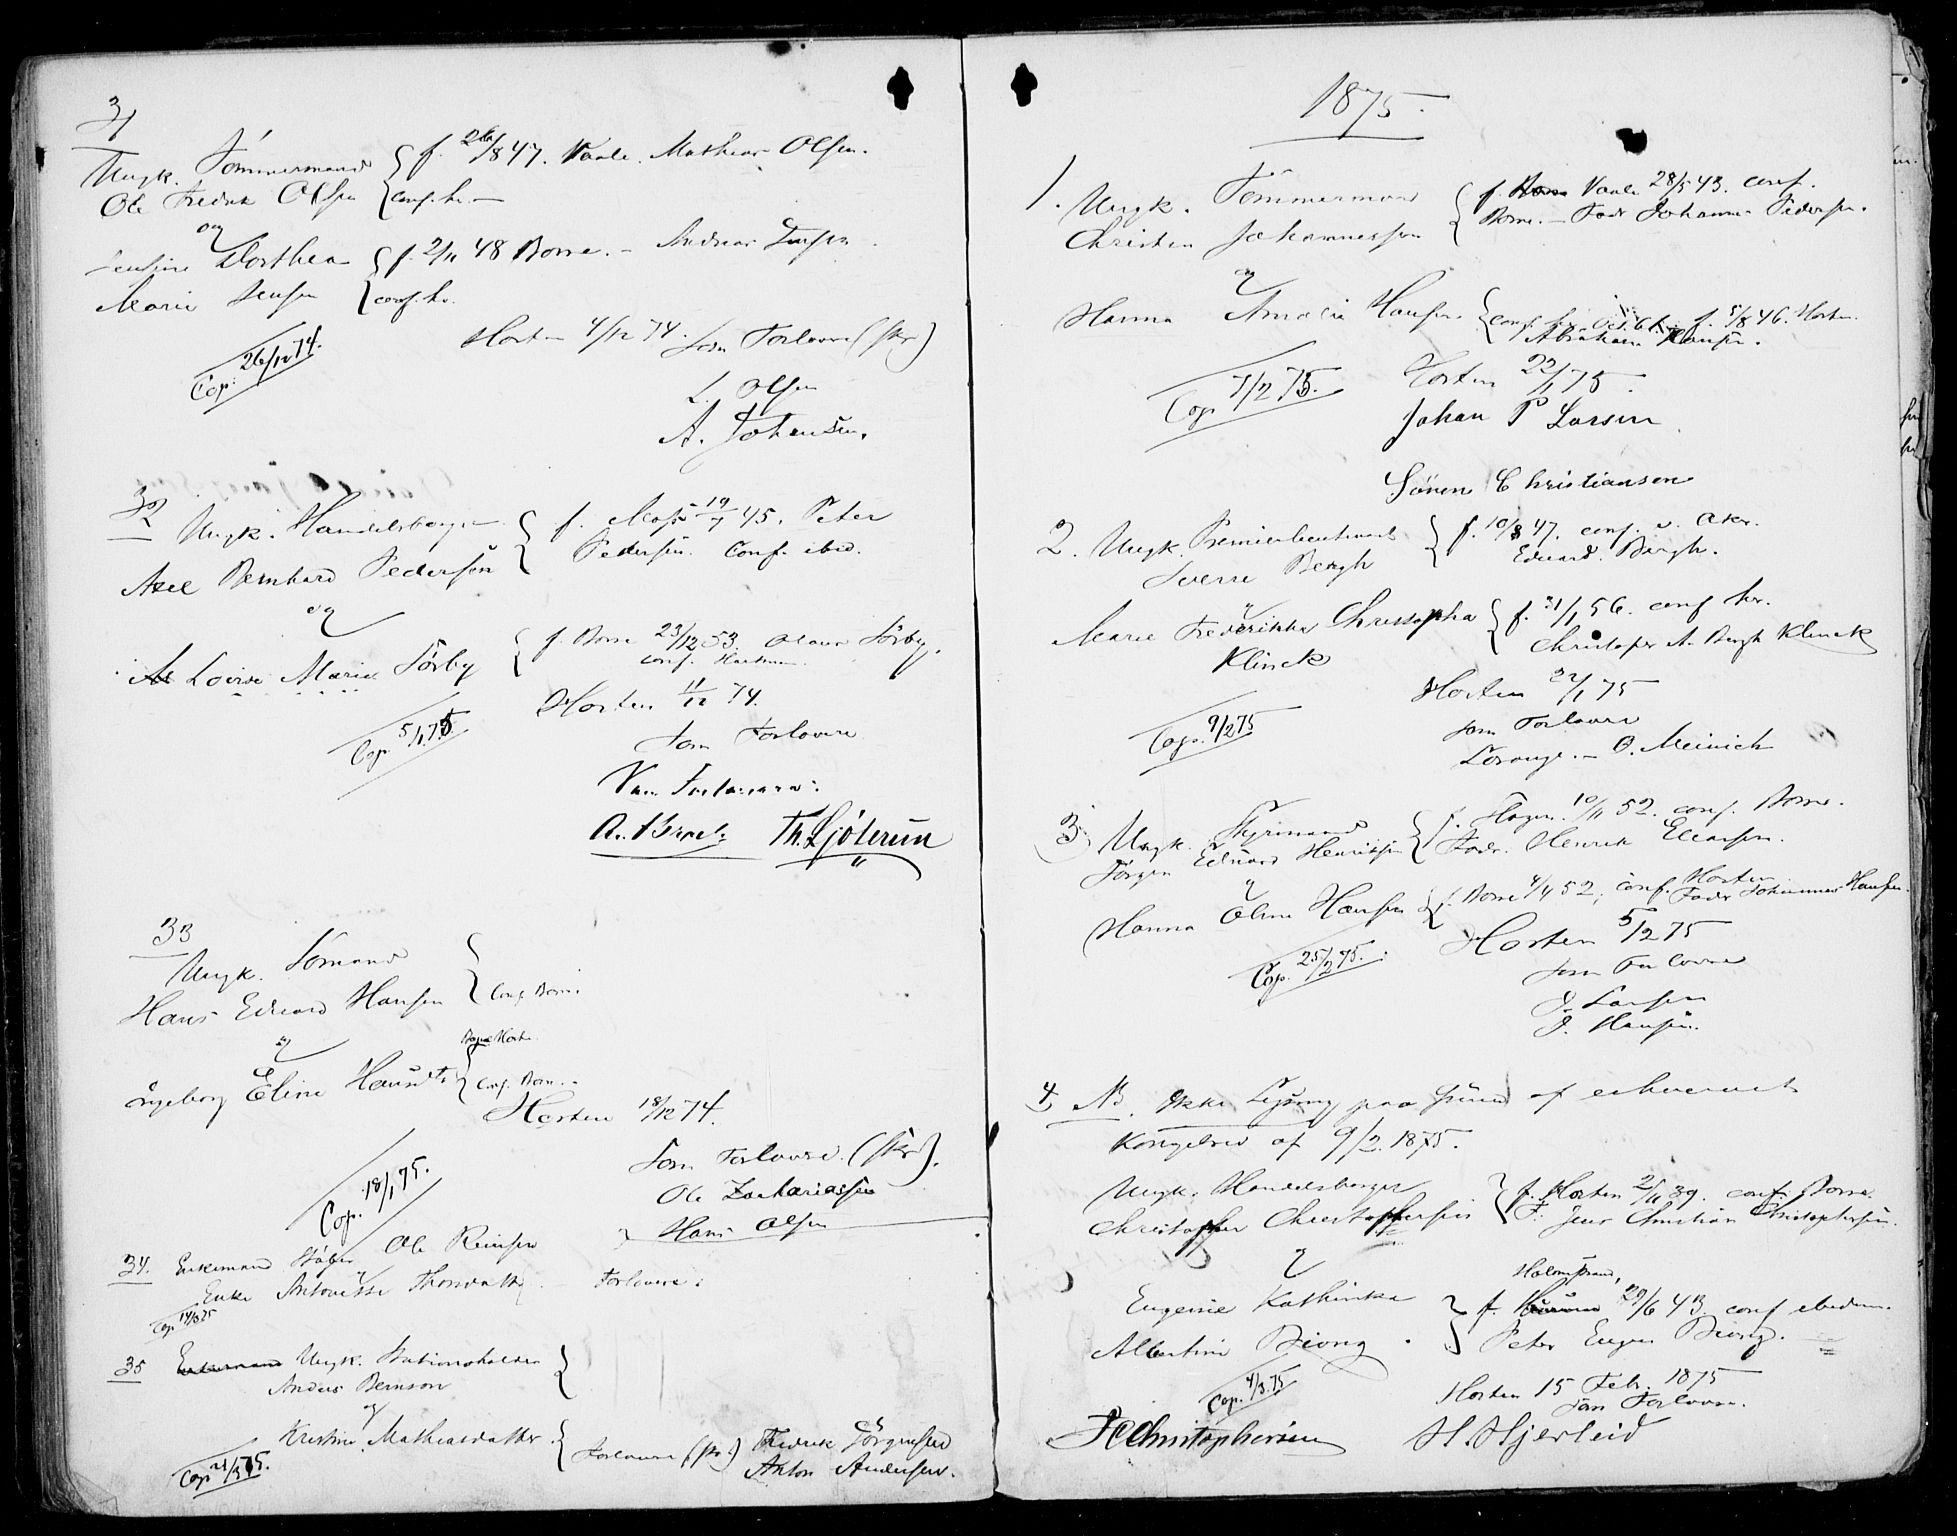 31
Ungk. Tömmermand { f. 26/8 47. Vaale. Mathias Olsen.
Ole Fredrik Olsen { conf. h. —
og
Dorthea { f. 2/11 48 Borre. – Andreas Jensen.
Marie Jensen { conf. h.
Horten 4/12 74. Som Forlovere (skr)
Cop: 26/12 74.
L. Olsen
A. Johansen.
32
Ungk. Handelsborger { f. Moss 19/7 45. Peter
Axel Bernhard Pedersen { Pedersen. Conf. ibid.
og
Lovise Marie Sörby { f. Borre 23/12 53. Olaus Sörby.
conf. Horten
Horten 11/12 74.
Cop. 5/1 75.
Som Forlovere
Th. Ljöterun
33
Ungk. Sömand {
Hans Edvard Hansen { Conf. Borre.
og
Horten
Ingeborg Eline { Conf. Borre.
Horten 18/12 74.
Som Forlovere. (skr).
Cop. 18/1 75.
Ole Zachariassen
Hans Olsen
34. Enkemand Ole Reinsen
Enke Antonette Thorsdatter Forlovere:
Cop. 14/3 75
35 Enkemand Ungk. Stationsholder {
Anders Bernson
og
Kristine Mathiasdatter. { Forlovere (skr) Fredrik Jörgensen
Cop 21/3 75. Anton Andersen.
1875.
1. Ungk. Tömmermand { f. Borre Vaale 28/5 43. conf.
Christen Johannessen { Borre. – Fadr Johannes Pedersen.
og
Hanna Amalia Hansen { conf. f. 5/8 46. Horten.
Abraham Hansen.
Cop 7/2 75. Horten 22/1 75.
Johan P Larsen
Sören Christiansen
2. Ungk. Premierlieutnant { f. 10/8 47. conf. v. Aker.
Sverre Bergh { Edvard. Bergh.
og
Marie Frederikke Christopha { f. 31/1 56. conf. her.
Klinck Christofer A. Bergh Klinck
Horten 22/1 75
Cop. 9/2 75 som Forlovere
Lorange. – O. Meinich
3. Ungk. Styrmand { f. Skogen. 10/11 52. conf. Borre.
Jörgen Edvard Henriksen { Fadr. Henrik Eliassen.
og
Hanna Oline Hansen { f. Borre 4/4 52, conf. Horten
Fadr Johannes Hansen.
Horten 5/2 75
Cop. 25/2 75. som Forlovere
J. Larsen
J. Hansen.
4. NB. Ikke Lysning paa Grund af erhvervet
Kongebrev af 9/2. 1875.
Ungk. Handelsborger { f. Horten 2/11 39. conf. Borre.
Christopher Christophersen { F. Jens Christian Christophersen.
og
Holmestrand,
Eugenie Kathinka } f. 29/6 43. conf ibidem.
Albertine Biong. } Peter Eugen Biong. –
Cop. 4/3. 75 Horten 15 Febr. 1875
som Forlovere.
Christophersen H. Hjerleid